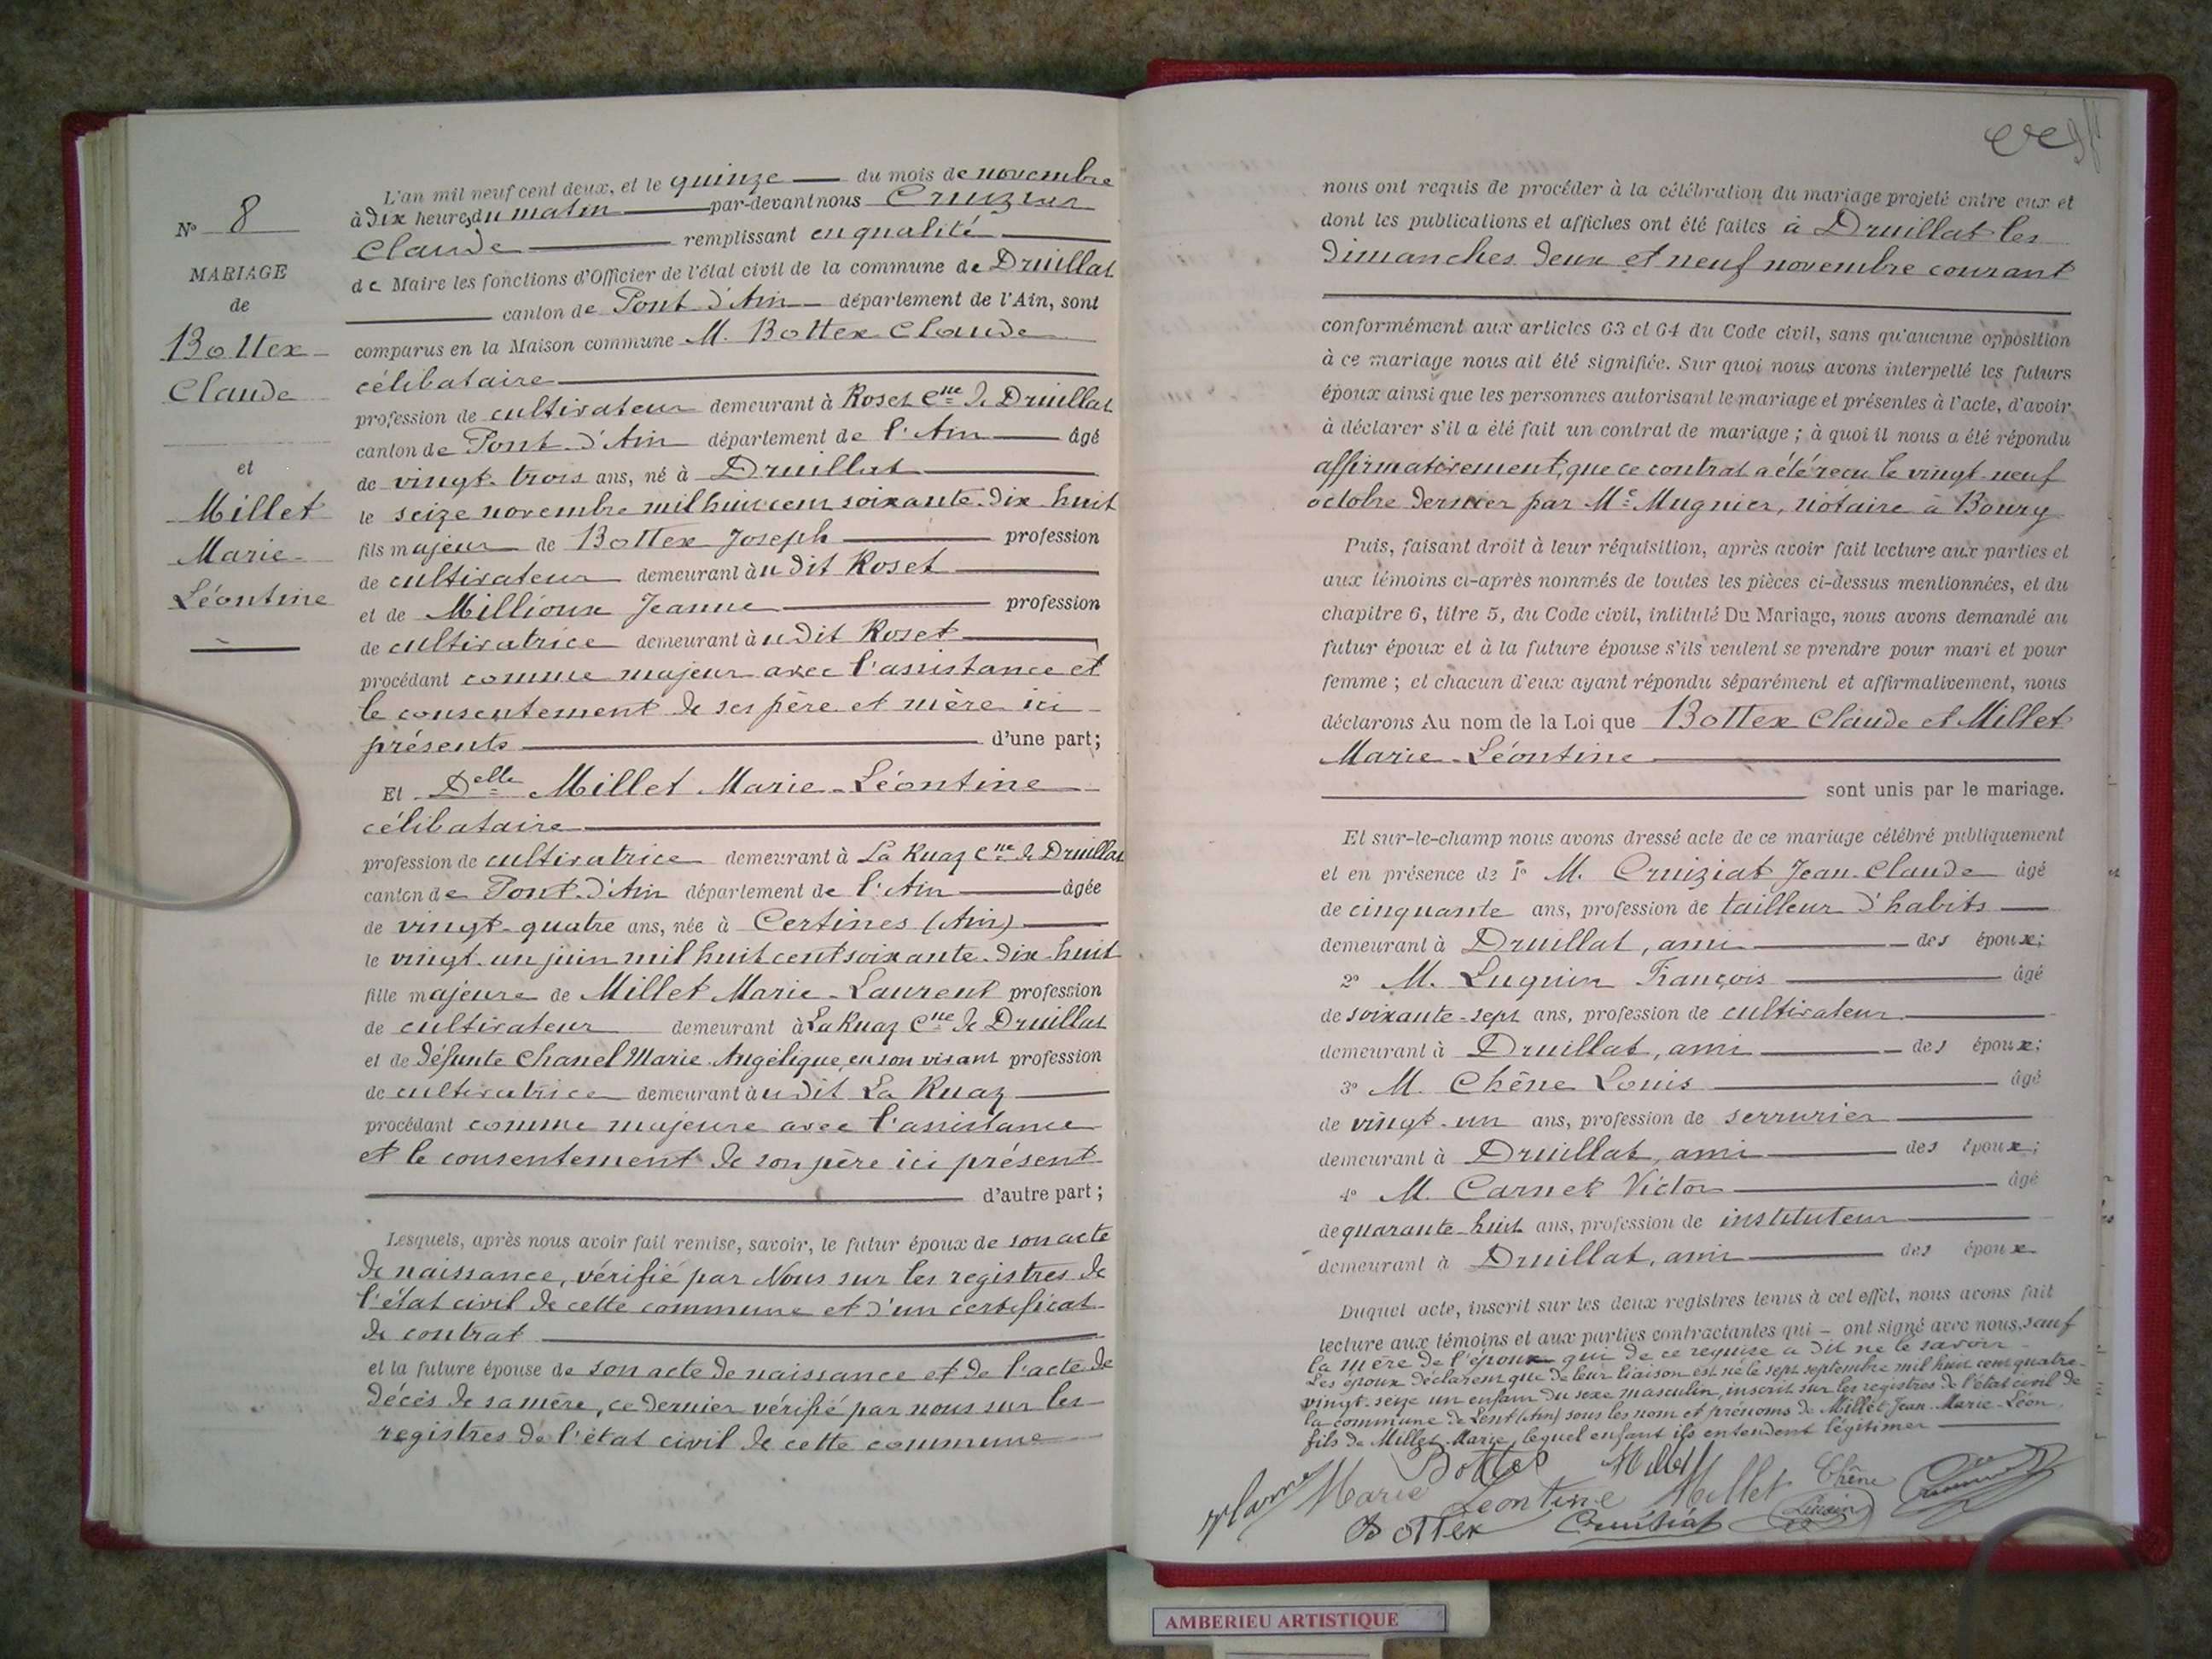 N° 8
MARIAGE
de
Bottex
Claude
et
Millet
Marie
Léontine
L'an mil neuf cent deux, et le quinze du mois de novembre
à dix heures du matin par-devant nous
Claude remplissant en qualité
de Maire les fonctions d'Officier de l'état civil de la commune de Druillat
canton de Pont d'Ain département de l'Ain, sont
comparus en la Maison commune M. Bottex Claude
célibataire
profession de cultivateur demeurant à Roset Cne de Druillat
canton de Pont-d'Ain département de l'Ain âgé
de vingt-trois ans, né à Druillat
le seize novembre mil huit cent soixante-dix-huit
fils majeur de Bottex Joseph profession
de cultivateur demeurant àu dit Roset
et de Millioux Jeanne profession
de cultivatrice demeurant àu dit Roset
procédant comme majeur avec l'assistance et
le consentement de ses père et mère ici
présents d'une part;
Et Delle Millet Marie-Léontine
célibataire
profession de cultivatrice demeurant à La Ruaz Cne de Druillat
canton de Pont-d'Ain département de l'Ain âgée
de vingt-quatre ans, née à Certines (Ain)
le vingt-un juin mil huit cent soixante-dix-huit
fille majeure de Millet Marie-Laurent profession
de cultivateur demeurant à La Ruaz Cne de Druillat
et de défunte Chanel Marie Angélique, en son vivant profession
de cultivatrice demeurant àu dit La Ruaz
procédant comme majeure avec l'assistance
et le consentement de son père ici présent
d'autre part;
Lesquels, après nous avoir fait remise, savoir, le futur époux de son acte
de naissance, vérifié par Nous sur les registres de
l'état civil de cette commune et d'un certificat
de contrat
et la future épouse de son acte de naissance et de l'acte de
décès de sa mère, ce dernier vérifié par nous sur les
registres de l'état civil de cette commune
nous ont requis de procéder à la célébration du mariage projeté entre eux et
dont les publications et affiches ont été faites à Druillat les
dimanches deux et neuf novembre courant
conformément aux articles 63 et 64 du Code civil, sans qu'aucune opposition
à ce mariage nous ait été signifiée. Sur quoi nous avons interpellé les futurs
époux ainsi que les personnes autorisant le mariage et présentes à l'acte, d'avoir
à déclarer s'il a été fait un contrat de mariage; à quoi il nous a été répondu
affirmativement, que ce contrat a été reçu le vingt-neuf
octobre dernier par Me Mugnier, notaire à Bourg
Puis, faisant droit à leur réquisition, après avoir fait lecture aux parties et
aux témoins ci-après nommés de toutes les pièces ci-dessus mentionnées, et du
chapitre 6, titre 5, du Code civil, intitulé Du Mariage, nous avons demandé au
futur époux et à la future épouse s'ils veulent se prendre pour mari et pour
femme; et chacun d'eux ayant répondu séparément et affirmativement, nous
déclarons Au nom de la Loi que Bottex Claude et Millet
Marie-Léontine
sont unis par le mariage.
Et sur-le-champ nous avons dressé acte de ce mariage célébré publiquement
et en présence de 1° M. Cruiziat Jean-Claude âgé
de cinquante ans, profession de tailleur d'habits
demeurant à Druillat, ami des époux;
2° M. Luguin François âgé
de soixante-sept ans, profession de cultivateur
demeurant à Druillat, ami des époux;
3° M. Chêne Louis âgé
de vingt-un ans, profession de serrurier
demeurant à Druillat, ami des époux;
4° M. Carnet Victor âgé
de quarante-huit ans, profession de instituteur
demeurant à Druillat, ami des époux
Duquel acte, inscrit sur les deux registres tenus à cet effet, nous avons fait
lecture aux témoins et aux parties contractantes qui ont signé avec nous, sauf
la mère de l'époux qui de ce requise a dit ne le savoir
Les époux déclarent que de leur liaison est né le sept septembre mil huit cent quatre-
vingt-seize un enfant du sexe masculin, inscrit sur les registres de l'état civil de
la commune de Lent (Ain) sous les nom et prénoms de Millet Jean-Marie-Léon,
fils de Millet Marie, lequel enfant ils entendent légitimer
Bottex Millet
Marie Léontine Millet Chêne
Bottex Cruiziat
AMBERIEU ARTISTIQUE